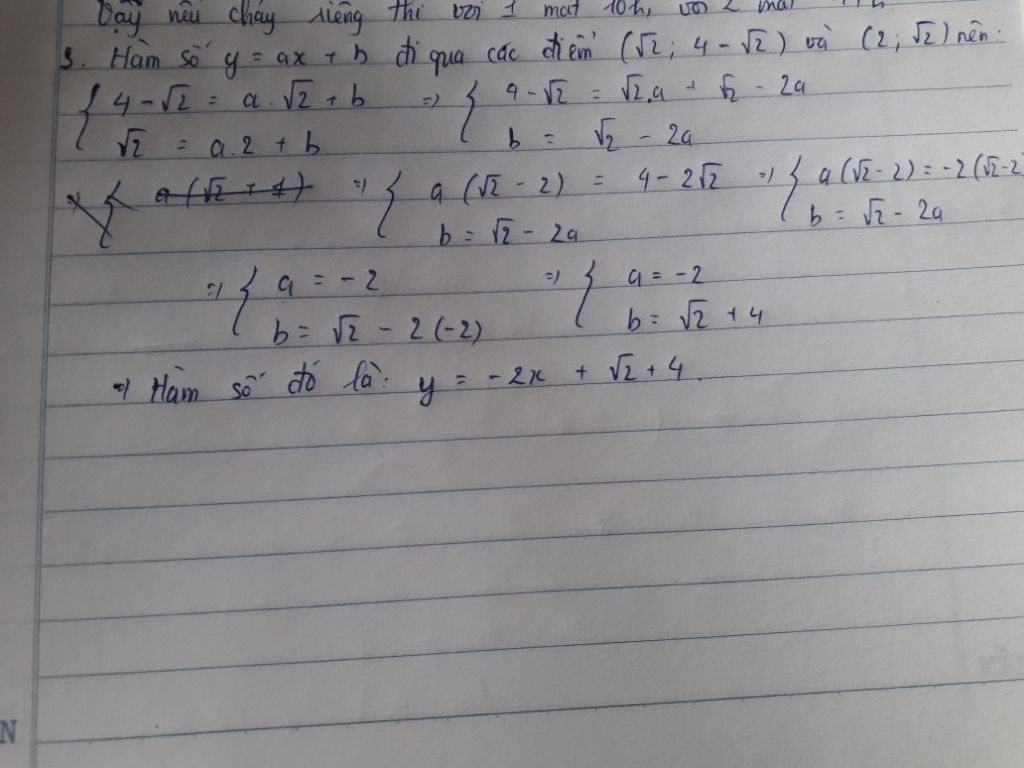 Vậy nếu chảy riêng thì vòi 1 mất 10h, vòi 2 mất
3. Hàm số y = ax + b đi qua các điểm (√2; 4 - √2) và (2; √2) nên:
{ 4 - √2 = a.√2 + b => { 4 - √2 = √2.a + √2 - 2a
√2 = a.2 + b b = √2 - 2a
=> { a(√2 - 2) = 4 - 2√2 => { a(√2 - 2) = -2(√2 - 2
b = √2 - 2a b = √2 - 2a
=> { a = -2 => { a = -2
b = √2 - 2(-2) b = √2 + 4
=> Hàm số đó là: y = -2x + √2 + 4.
N